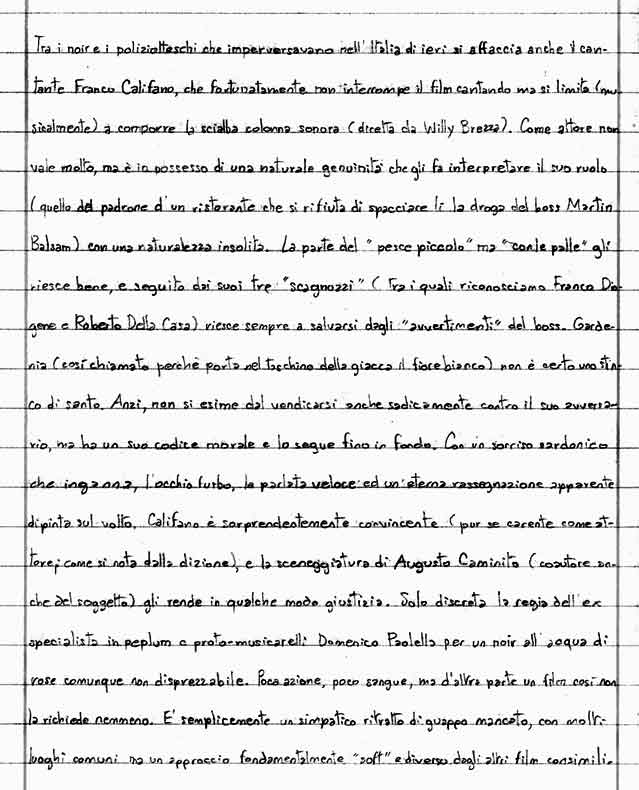 Tra i noir e i poliziotteschi che imperversavano nell'Italia di ieri si affaccia anche il can-
tante Franco Califano, che fortunatamente non interrompe il film cantando ma si limita (mu-
sicalmente) a comporre la scialba colonna sonora (diretta da Willy Brezza). Come attore non
vale molto, ma è in possesso di una naturale genuinità che gli fa interpretare il suo ruolo
(quello del padrone d'un ristorante che si rifiuta di spacciare lì la droga del boss Martin
Balsam) con una naturalezza insolita. La parte del "pesce piccolo" ma "con le palle" gli
riesce bene, e seguito dai suoi tre "scagnozzi" (tra i quali riconosciamo Franco Dio-
gene e Roberto Della Casa) riesce sempre a salvarsi dagli "avvertimenti" del boss. Garde-
nia (così chiamato perchè porta nel taschino della giacca il fiore bianco) non è certo uno stin-
co di santo. Anzi, non si esime dal vendicarsi anche sadicamente contro il suo avversa-
rio, ma ha un suo codice morale e lo segue fino in fondo. Con un sorriso sardonico
che inganna, l'occhio furbo, la parlata veloce ed un'eterna rassegnazione apparente
dipinta sul volto, Califano è sorprendentemente convincente (pur se carente come at-
tore, come si nota dalla dizione), e la sceneggiatura di Augusto Caminito (coautore an-
che del soggetto) gli rende in qualche modo giustizia. Solo discreta la regia dell'ex
specialista in peplum e proto-musicarelli Domenico Paolella per un noir all'acqua di
rose comunque non disprezzabile. Poca azione, poco sangue, ma d'altra parte un film così non
la richiede nemmeno. E' semplicemente un simpatico ritratto di guappo mancato, con molti
luoghi comuni ma un approccio fondamentalmente "soft" e diverso dagli altri film consimili.